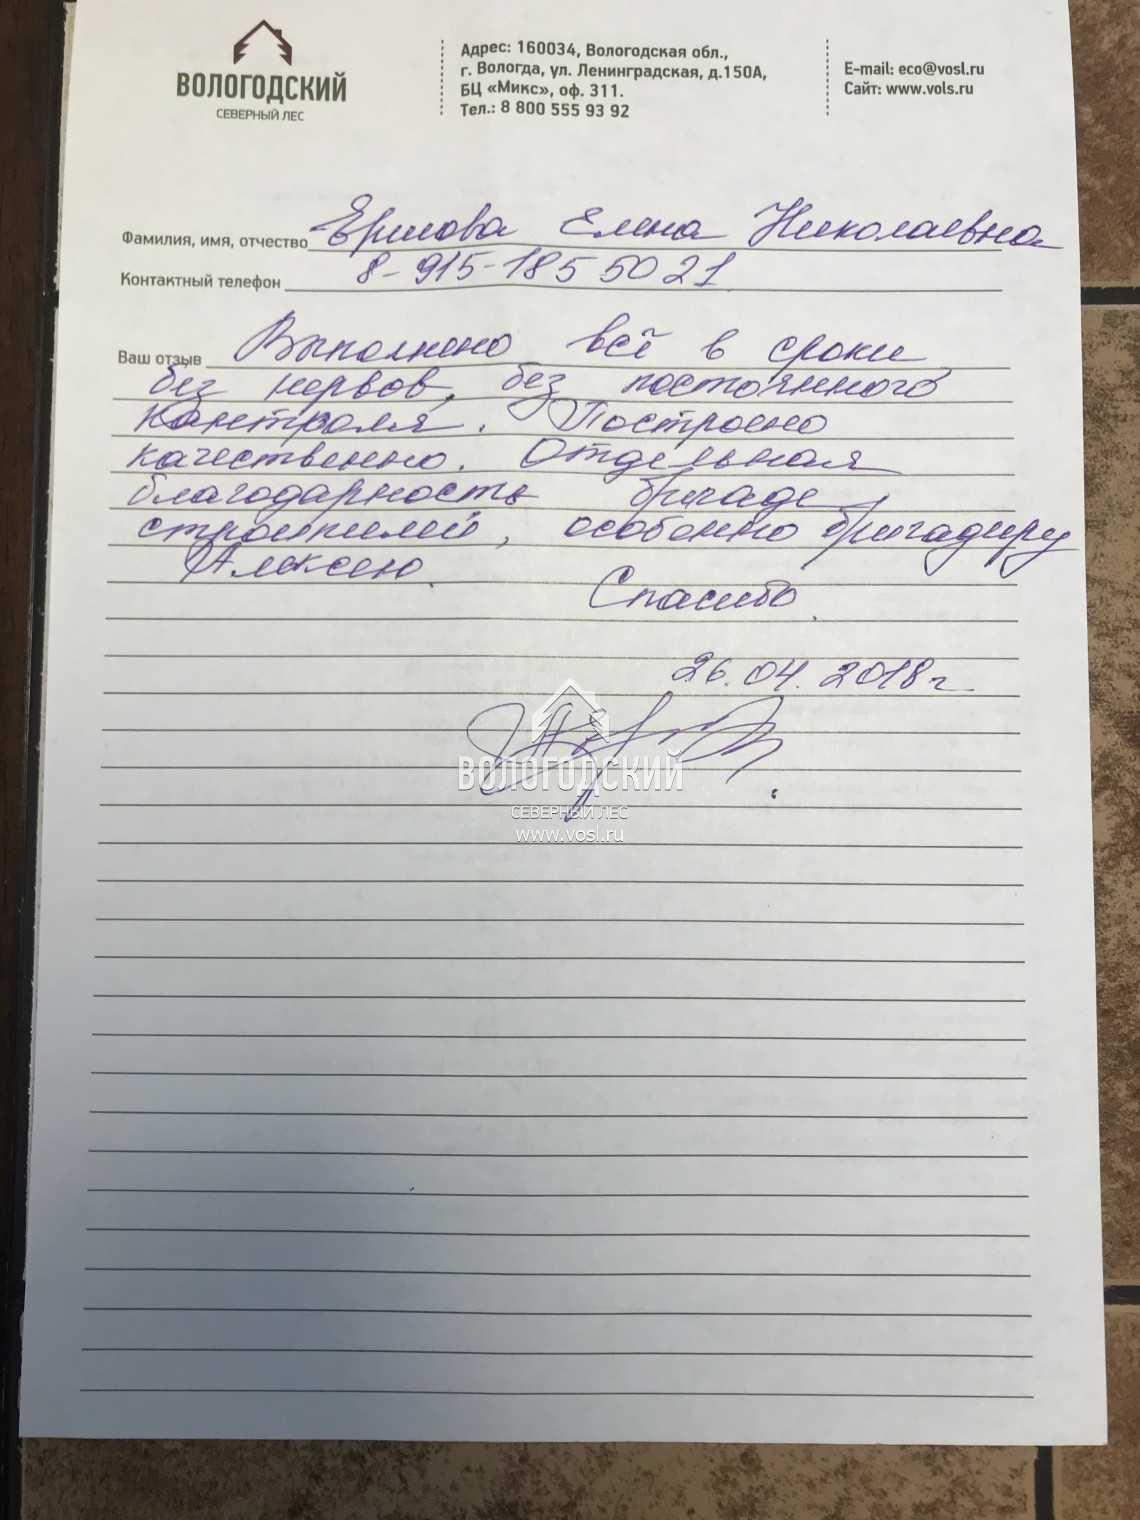 ВОЛОГОДСКИЙ
СЕВЕРНЫЙ ЛЕС
Адрес: 160034, Вологодская обл.,
г. Вологда, ул. Ленинградская, д.150А,
БЦ «Микс», оф. 311.
Тел.: 8 800 555 93 92
E-mail: eco@vosl.ru
Сайт: www.vols.ru
Фамилия, имя, отчество Ермлова Елена Николаевна
Контактный телефон 8-915-185 50 21
Ваш отзыв Выполнено всё в сроки,
без нервов, без постоянного
контроля. Построено
качественно. Отдельная
благодарность бригаде
строителей, особенно бригадиру
Алексею.
Спасибо.
26.04.2018 г.
ВОЛОГОДСКИЙ
СЕВЕРНЫЙ ЛЕС
www.vosl.ru